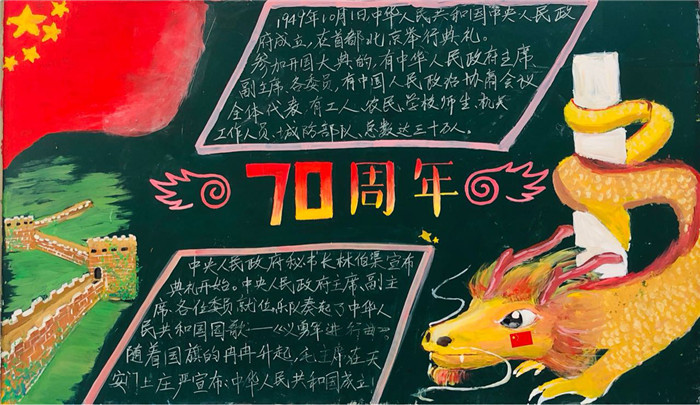 1949年10月1日,中华人民共和国中央人民政
府成立,在首都北京举行典礼。
参加开国大典的,有中华人民政府主席、
副主席、各委员,有中国人民政治协商会议
全体代表,有工人、农民、学校师生、机关
工作人员、城防部队、总数达三十万人。
70周年
中央人民政府秘书长林伯渠宣布
典礼开始。中央人民政府主席、副主
席、各位委员就位,乐队奏起了中华人
民共和国国歌——《义勇军进行曲》。
随着国旗的冉冉升起,毛主席在天
安门上庄严宣布:中华人民共和国成立!